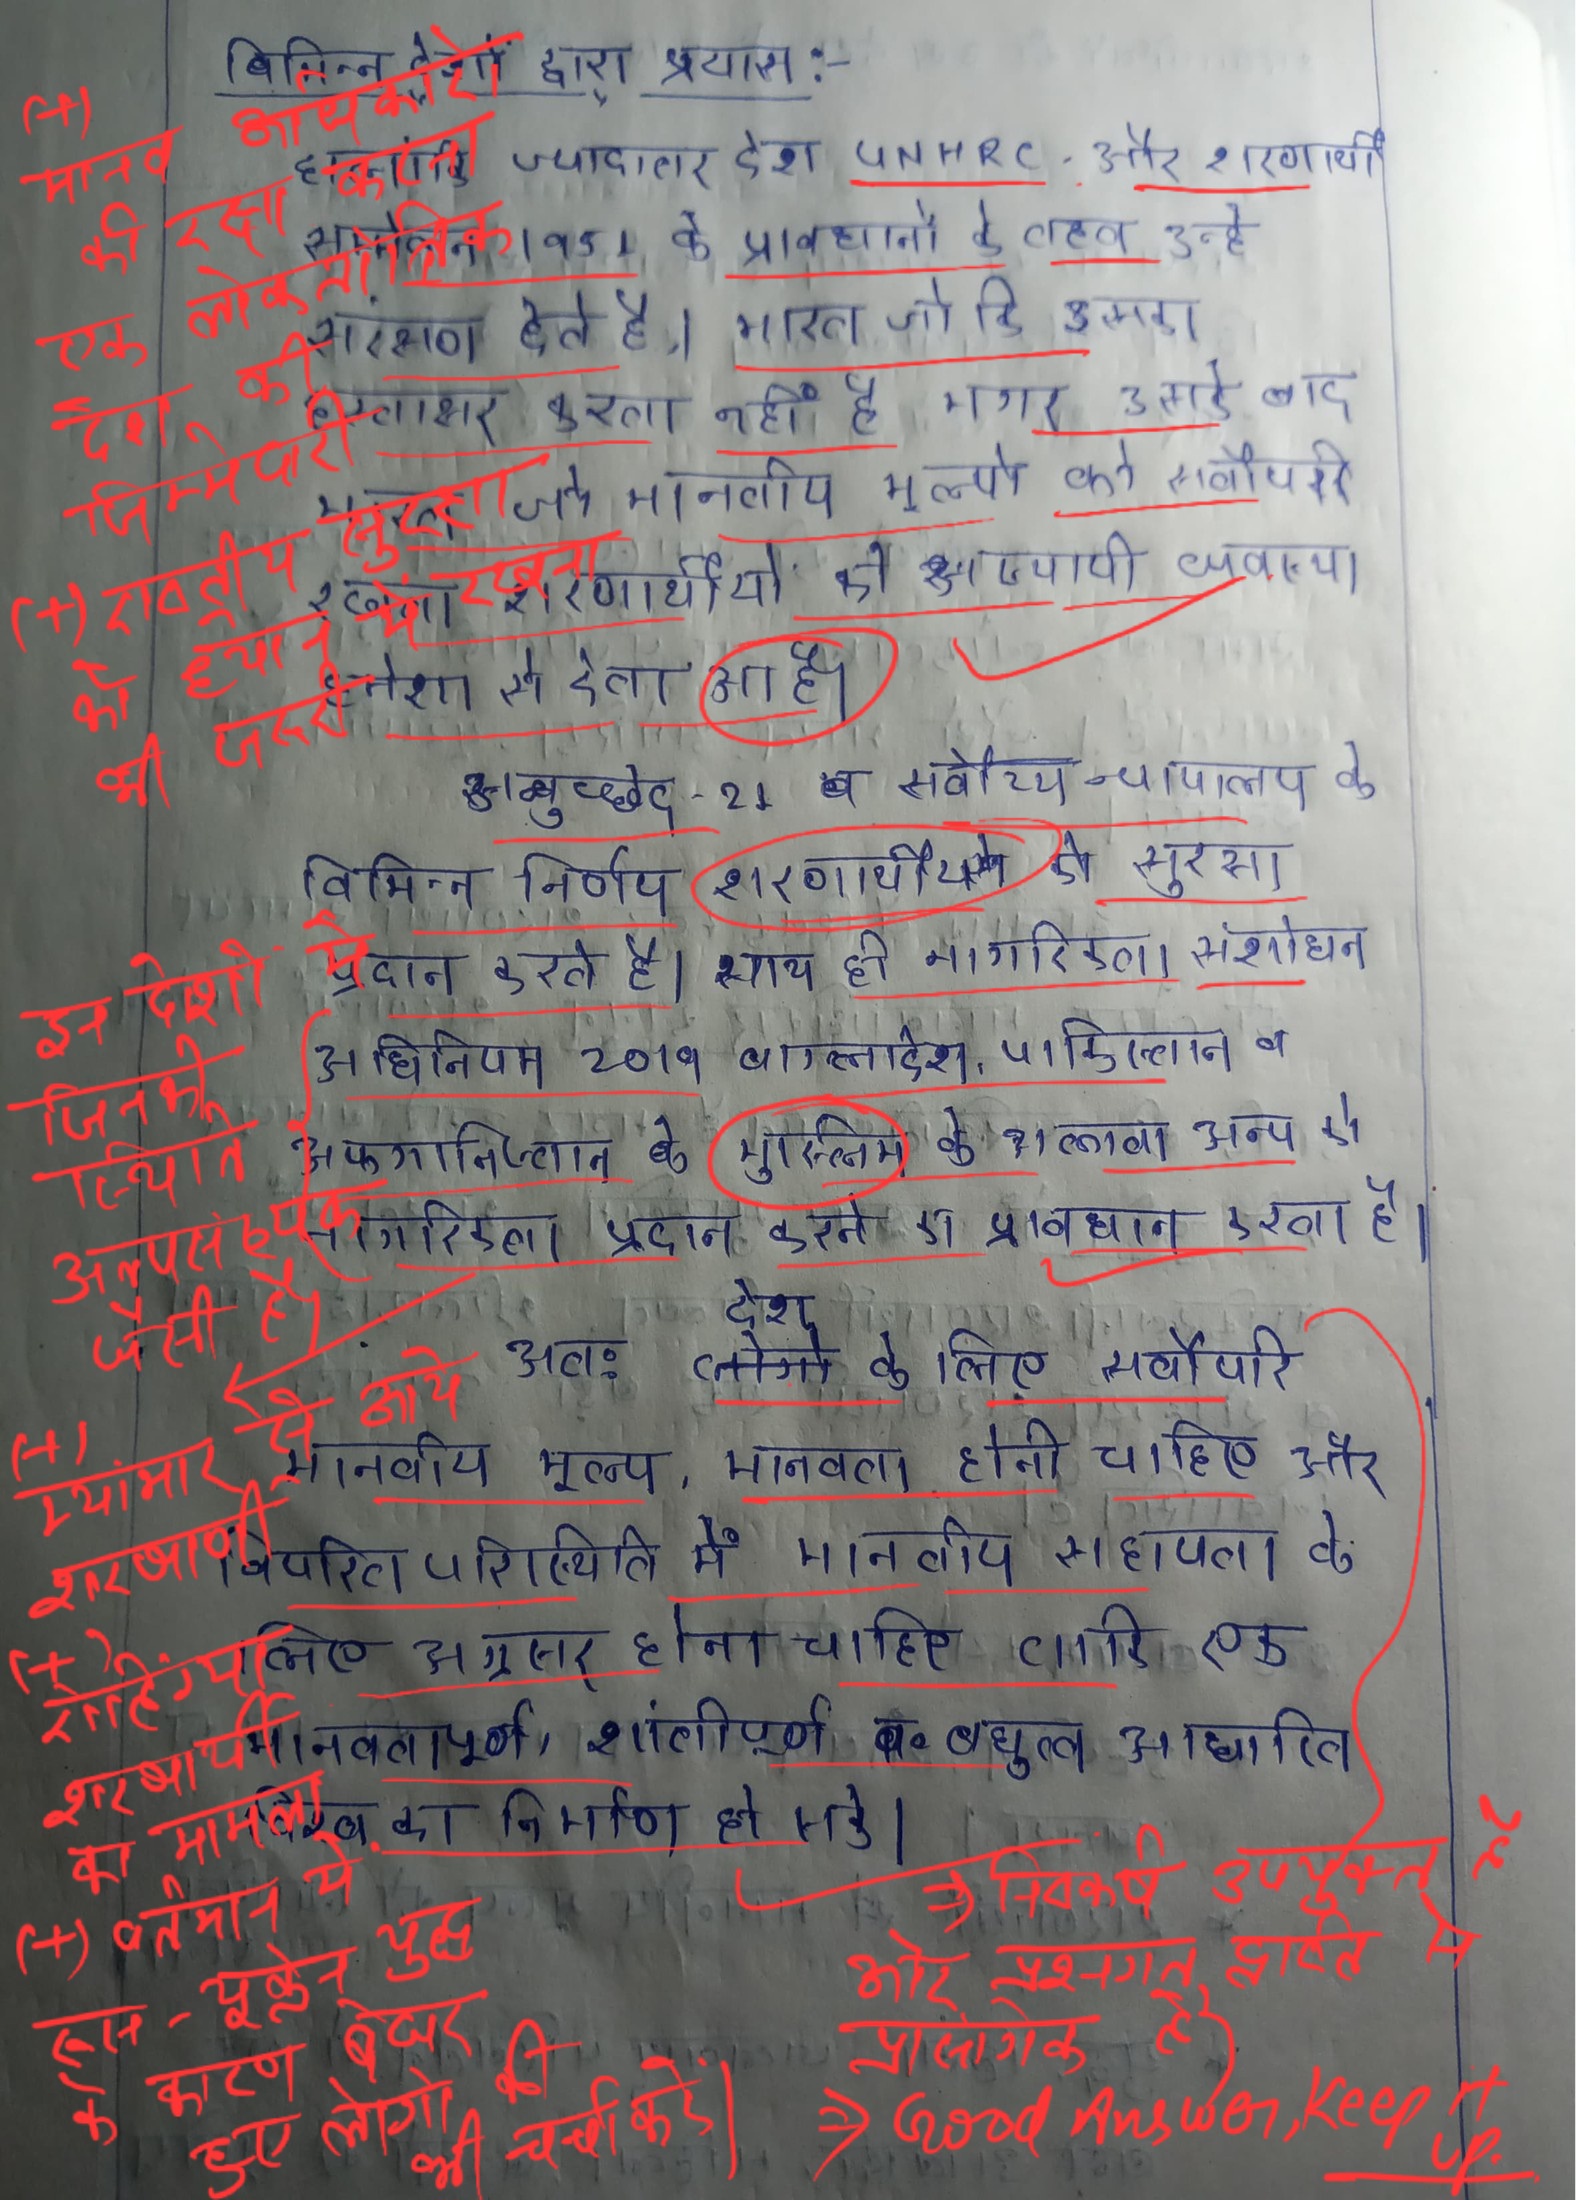 विभिन्न देशों द्वारा प्रयास :-
हालांकि ज्यादातर देश UNHRC और शरणार्थी
सम्मेलन 1951 के प्रावधानों के तहत उन्हे
संरक्षण देते है। भारत जो कि उसका
हस्ताक्षर करता नहीं है मगर उसके बाद
भारत जो मानवीय मूल्यो को सर्वोपरी
रखता शरणार्थीयो को अस्थायी व्यवस्था
हमेशा से देता आ है।
अनुच्छेद-21 व सर्वोच्य न्यायालय के
विभिन्न निर्णय शरणार्थीयो को सुरक्षा
प्रदान करते है। साथ ही नागरिकता संशोधन
अधिनियम 2019 बाग्लादेश, पाकिस्तान व
अफगानिस्तान के मुस्लिम के अलावा अन्य को
नागरिकता प्रदान करने का प्रावधान करता है।
देश
अतः लोगो के लिए सर्वोपरि
मानवीय मूल्य, मानवता होनी चाहिए और
विपरित परिस्थिति में मानवीय सहायता के
लिए अग्रसर होना चाहिए ताकि एक
मानवतापूर्ण, शांतीपूर्ण व बधुत्व आधारित
विश्व का निर्माण हो सके।
(+)
मानव अधिकारों
की रक्षा करना
एक लोकतांत्रिक
देश की
जिम्मेदारी
(+) राष्ट्रीय सुरक्षा
को ध्यान में रखना
भी जरूरी
इन देशों में
जिनकी
स्थिति
अल्पसंख्यक
जैसी है।
(+)
म्यांमार से आये
शरणार्थी
(+)
रोहिंग्या
शरणार्थी
का मामला
(+) वर्तमान में
रूस-यूक्रेन युद्ध
के कारण बेघर
हुए लोगो की
भी चर्चा करें।
⇒ निष्कर्ष उपयुक्त है
और प्रश्नगत दृष्टि से
प्रासंगिक है।
⇒ Good Answer, Keep it
up.